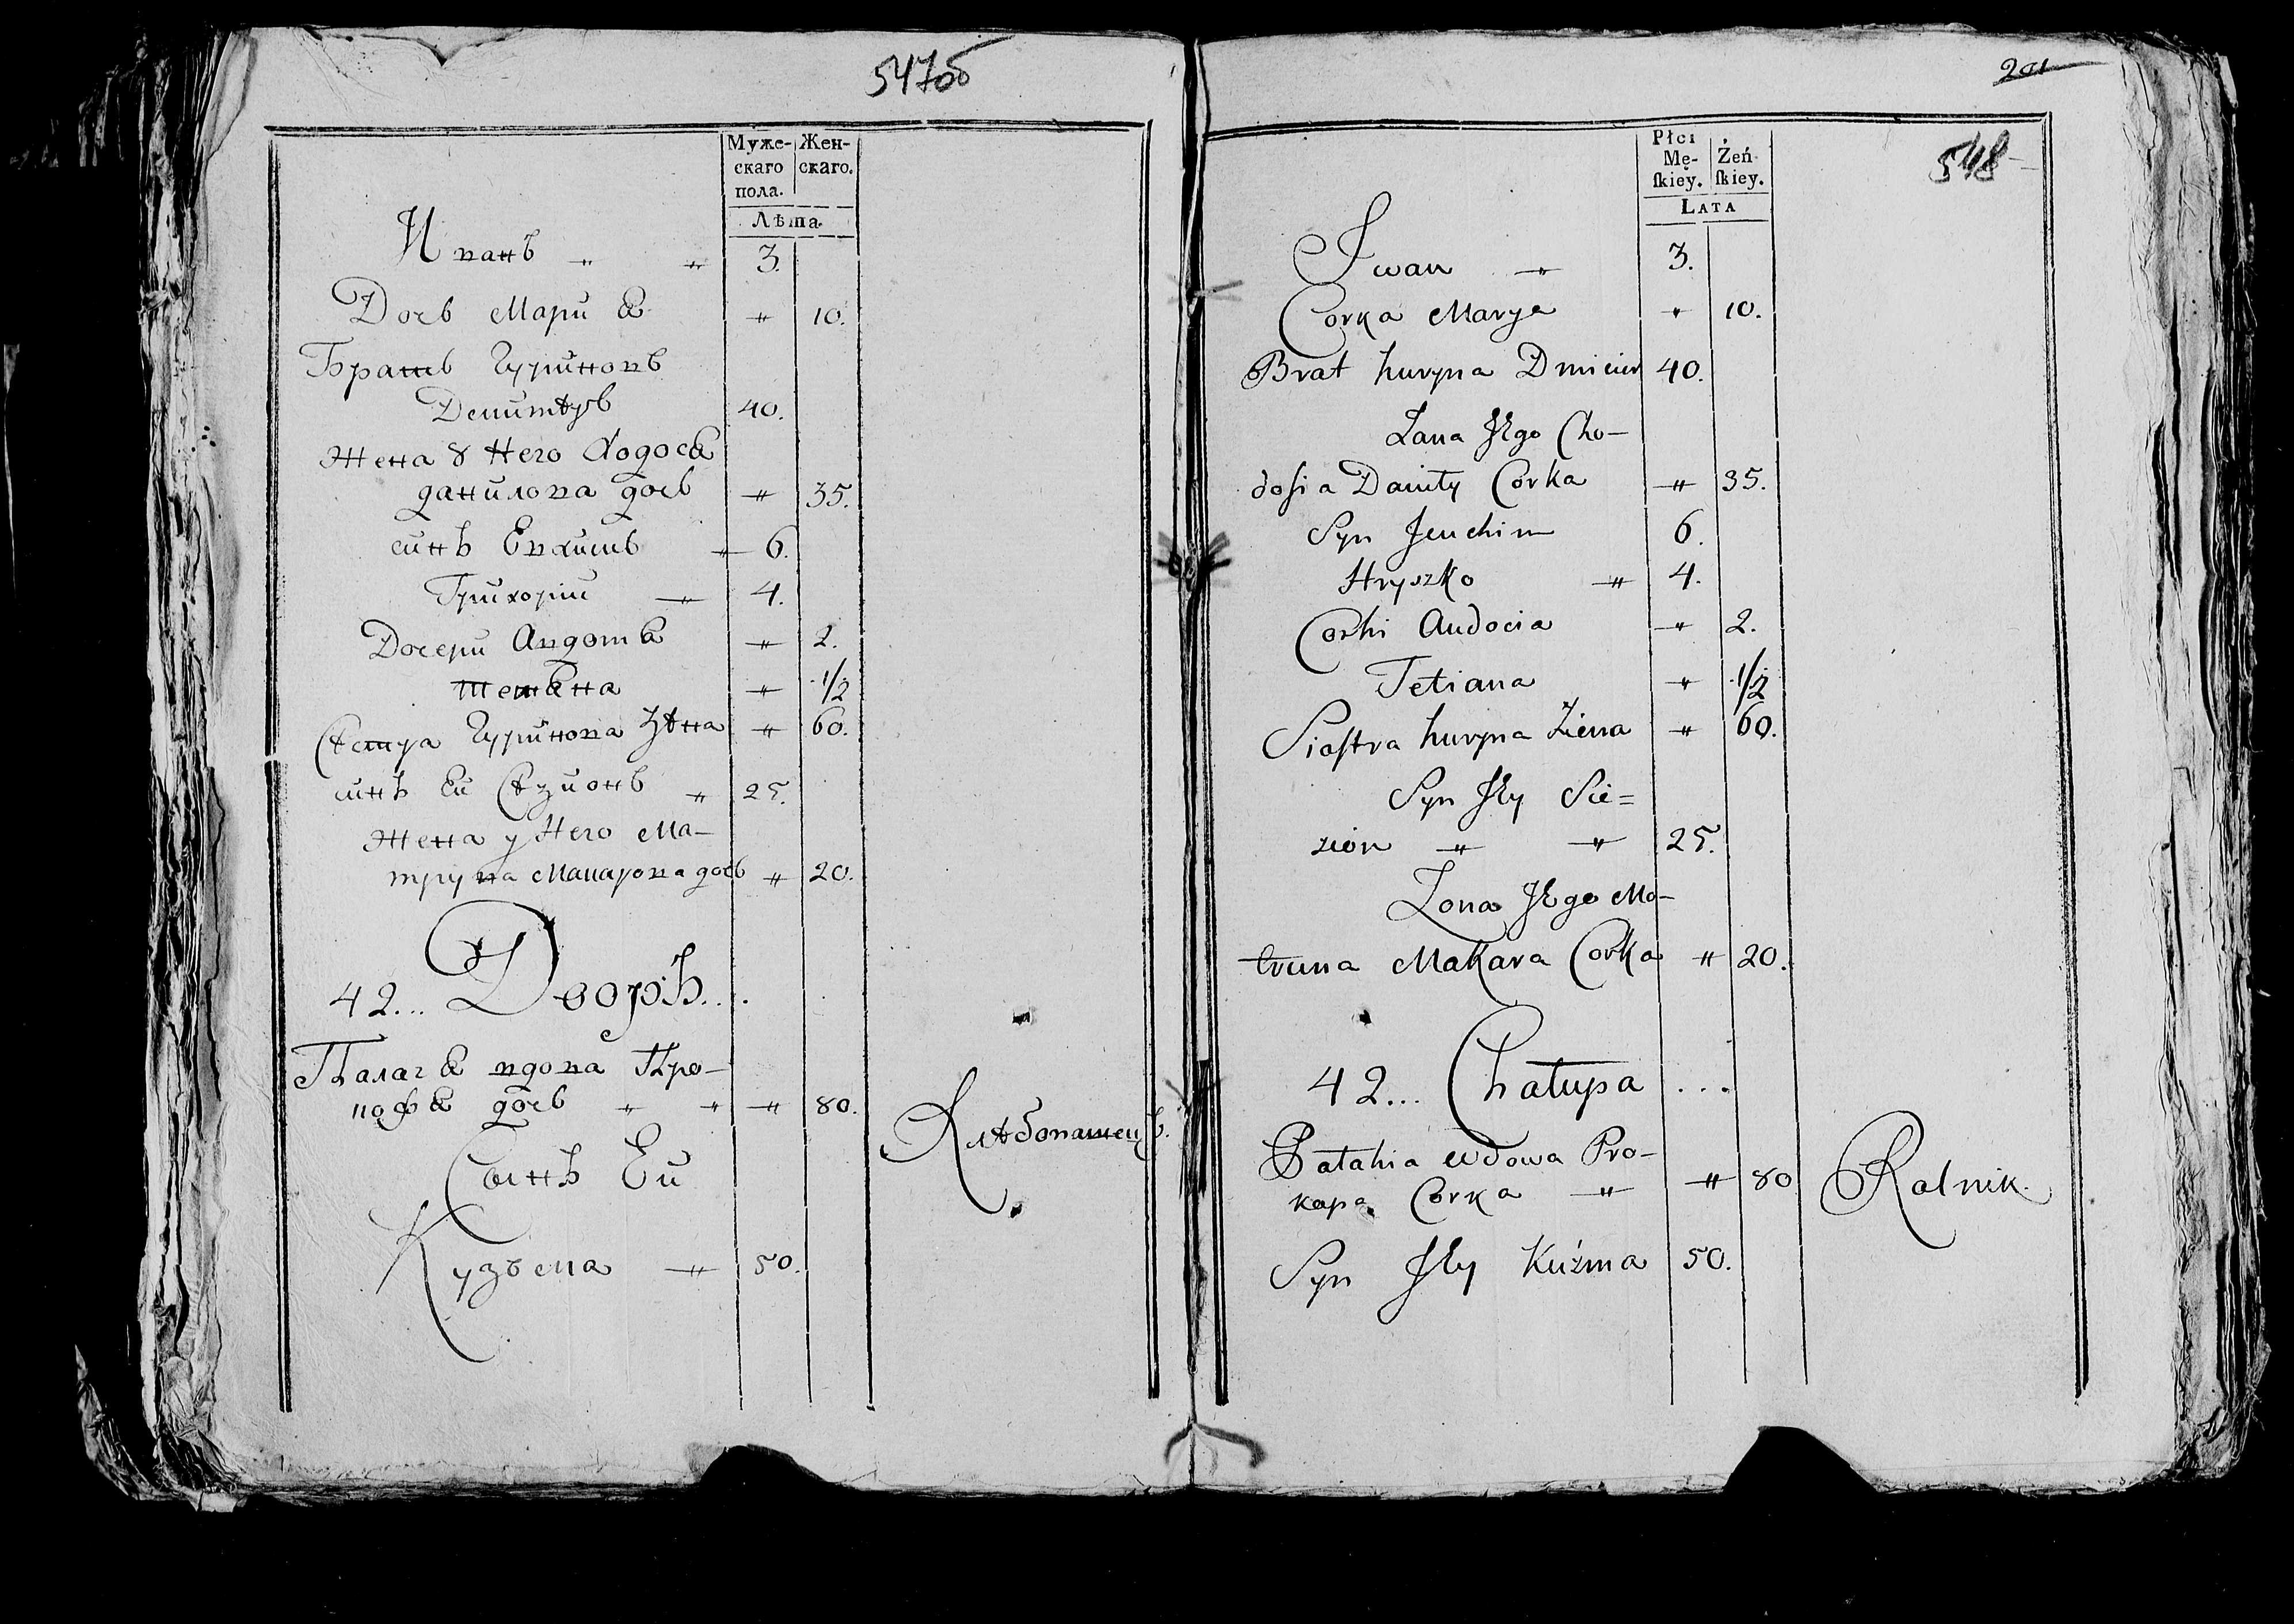 547об
Муже-
скаго
пола.
Жен-
скаго.
Лѣта.
Иванъ " " 3.
Дочь Мариѧ " 10.
Братъ Гуриновъ
Демитръ 40.
Жена ꙋ Него Ходосѧ
данилова дочь " 35.
синъ Евхимъ " 6.
Григорiи " 4.
Дочери Авдотѧ " 2.
тетѧна " 1/2
Сѣстра Гуринова Зѣна " 60.
синъ Еи Сѣзионъ " 25.
Жена у Него Ма-
трупа Макарова дочь " 20.
42... Дворъ...
Палагѧ вдова Про-
кофѧ дочь " " " 80.
Хлѣбопашецъ.
Сынъ Еи
Кузьма " 50.
201
548
Płci
Mę-
ſkiey.
Żeń-
ſkiey.
LATA
Iwan " 3.
Corka Marya " 10.
Brat huryna Dmicier 40.
Żana JEgo Cho-
dosia Daniły Corka " 35.
Syn Jeuchim 6.
Hryszko " 4.
Corki Audocia " 2.
Tetiana " 1/2
Siaſtra huryna Ziena " 60.
Syn JEy Sie=
zion " " 25.
Żona JEgo Mo-
truna Makara Corka " 20.
42... Chałupa ...
Patahia wdowa Pro-
kapa Corka " " 80
Rolnik.
Syn JEy Kuźma 50.